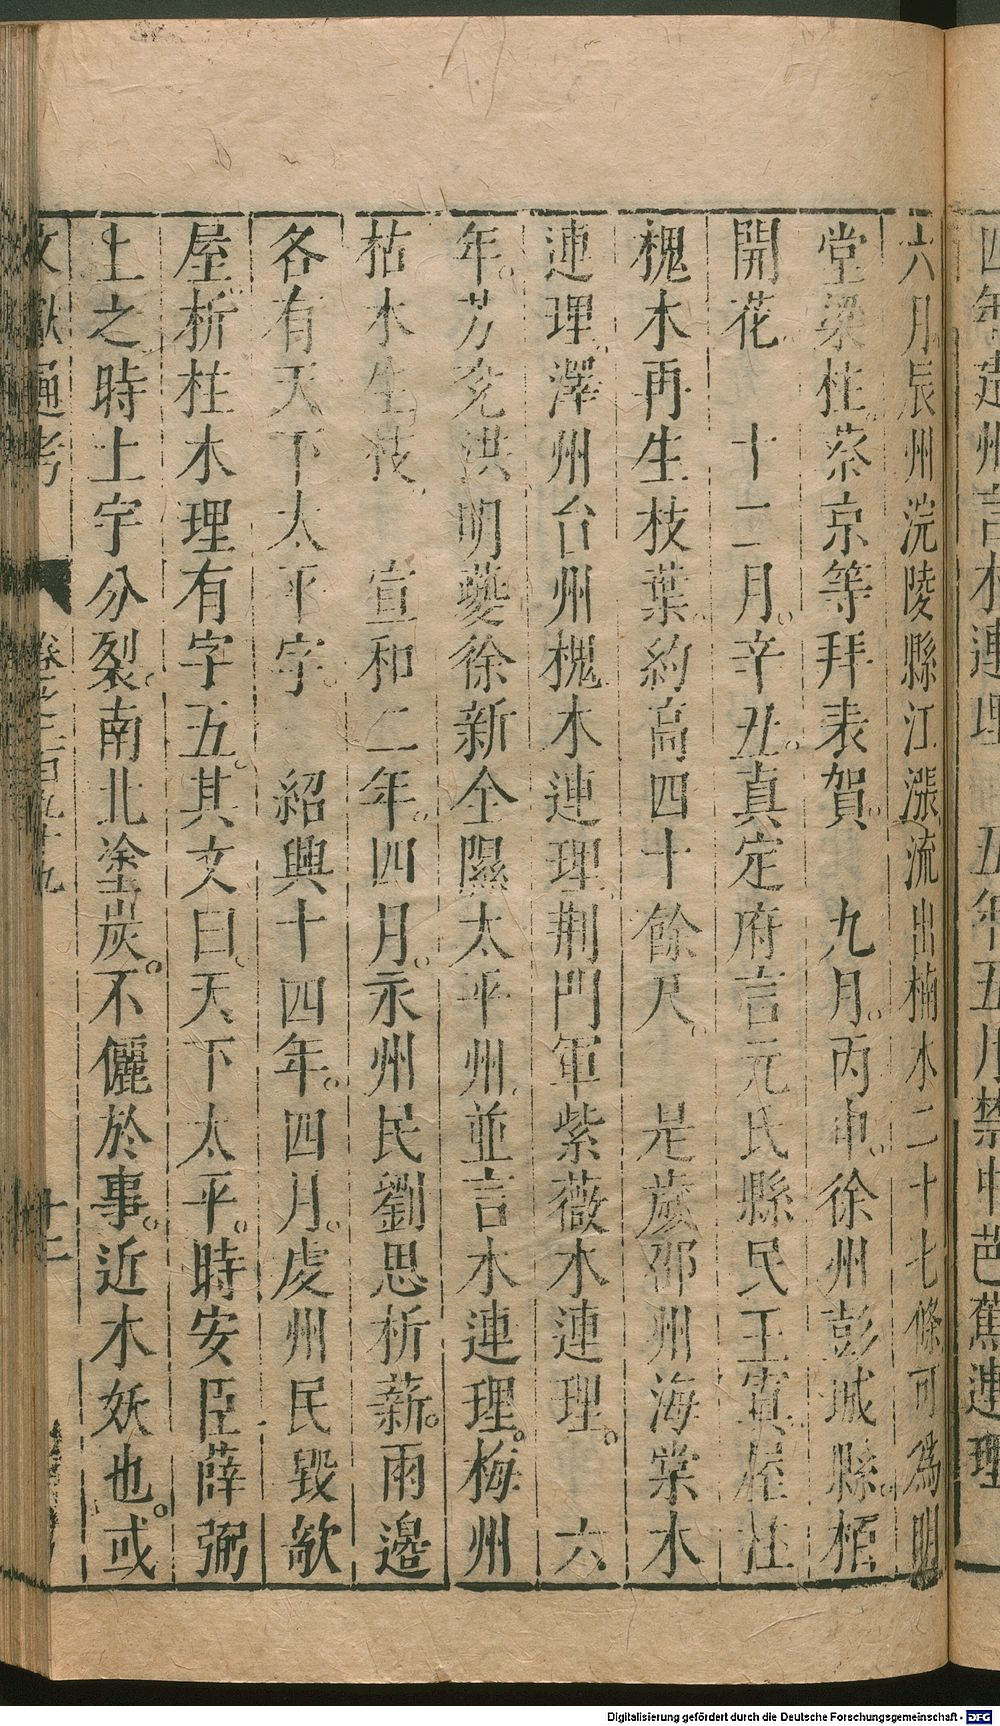 四年建州言木連理 五年五月禁中芭蕉連理
六月辰州沅陵縣江漲流出楠木二十七條可爲明
堂梁柱蔡京等拜表賀。 九月。丙申。徐州彭城縣。栢
開花 十二月。辛丑。真定府言元氏縣民王實屋柱
槐木再生枝葉。約高四十餘尺。 是歲邵州海棠木
連理澤州台州槐木連理荆門軍紫薇木連理。 六
年。芳 洪 明 徐新全隰太平州並言木連理。梅州
枯木生枝 宣和二年。四月。永州民劉思析薪。兩邉
各有天下太平字。 紹興十四年。四月。虔州民毀欹
屋析柱木理有字五。其文曰天下太平。時安臣薛弼
上之時土宇分裂。南北塗炭。不儷於事。近木妖也。或
文獻通考 卷之二百九十九 十二
Digitalisierung gefördert durch die Deutsche Forschungsgemeinschaft - DFG